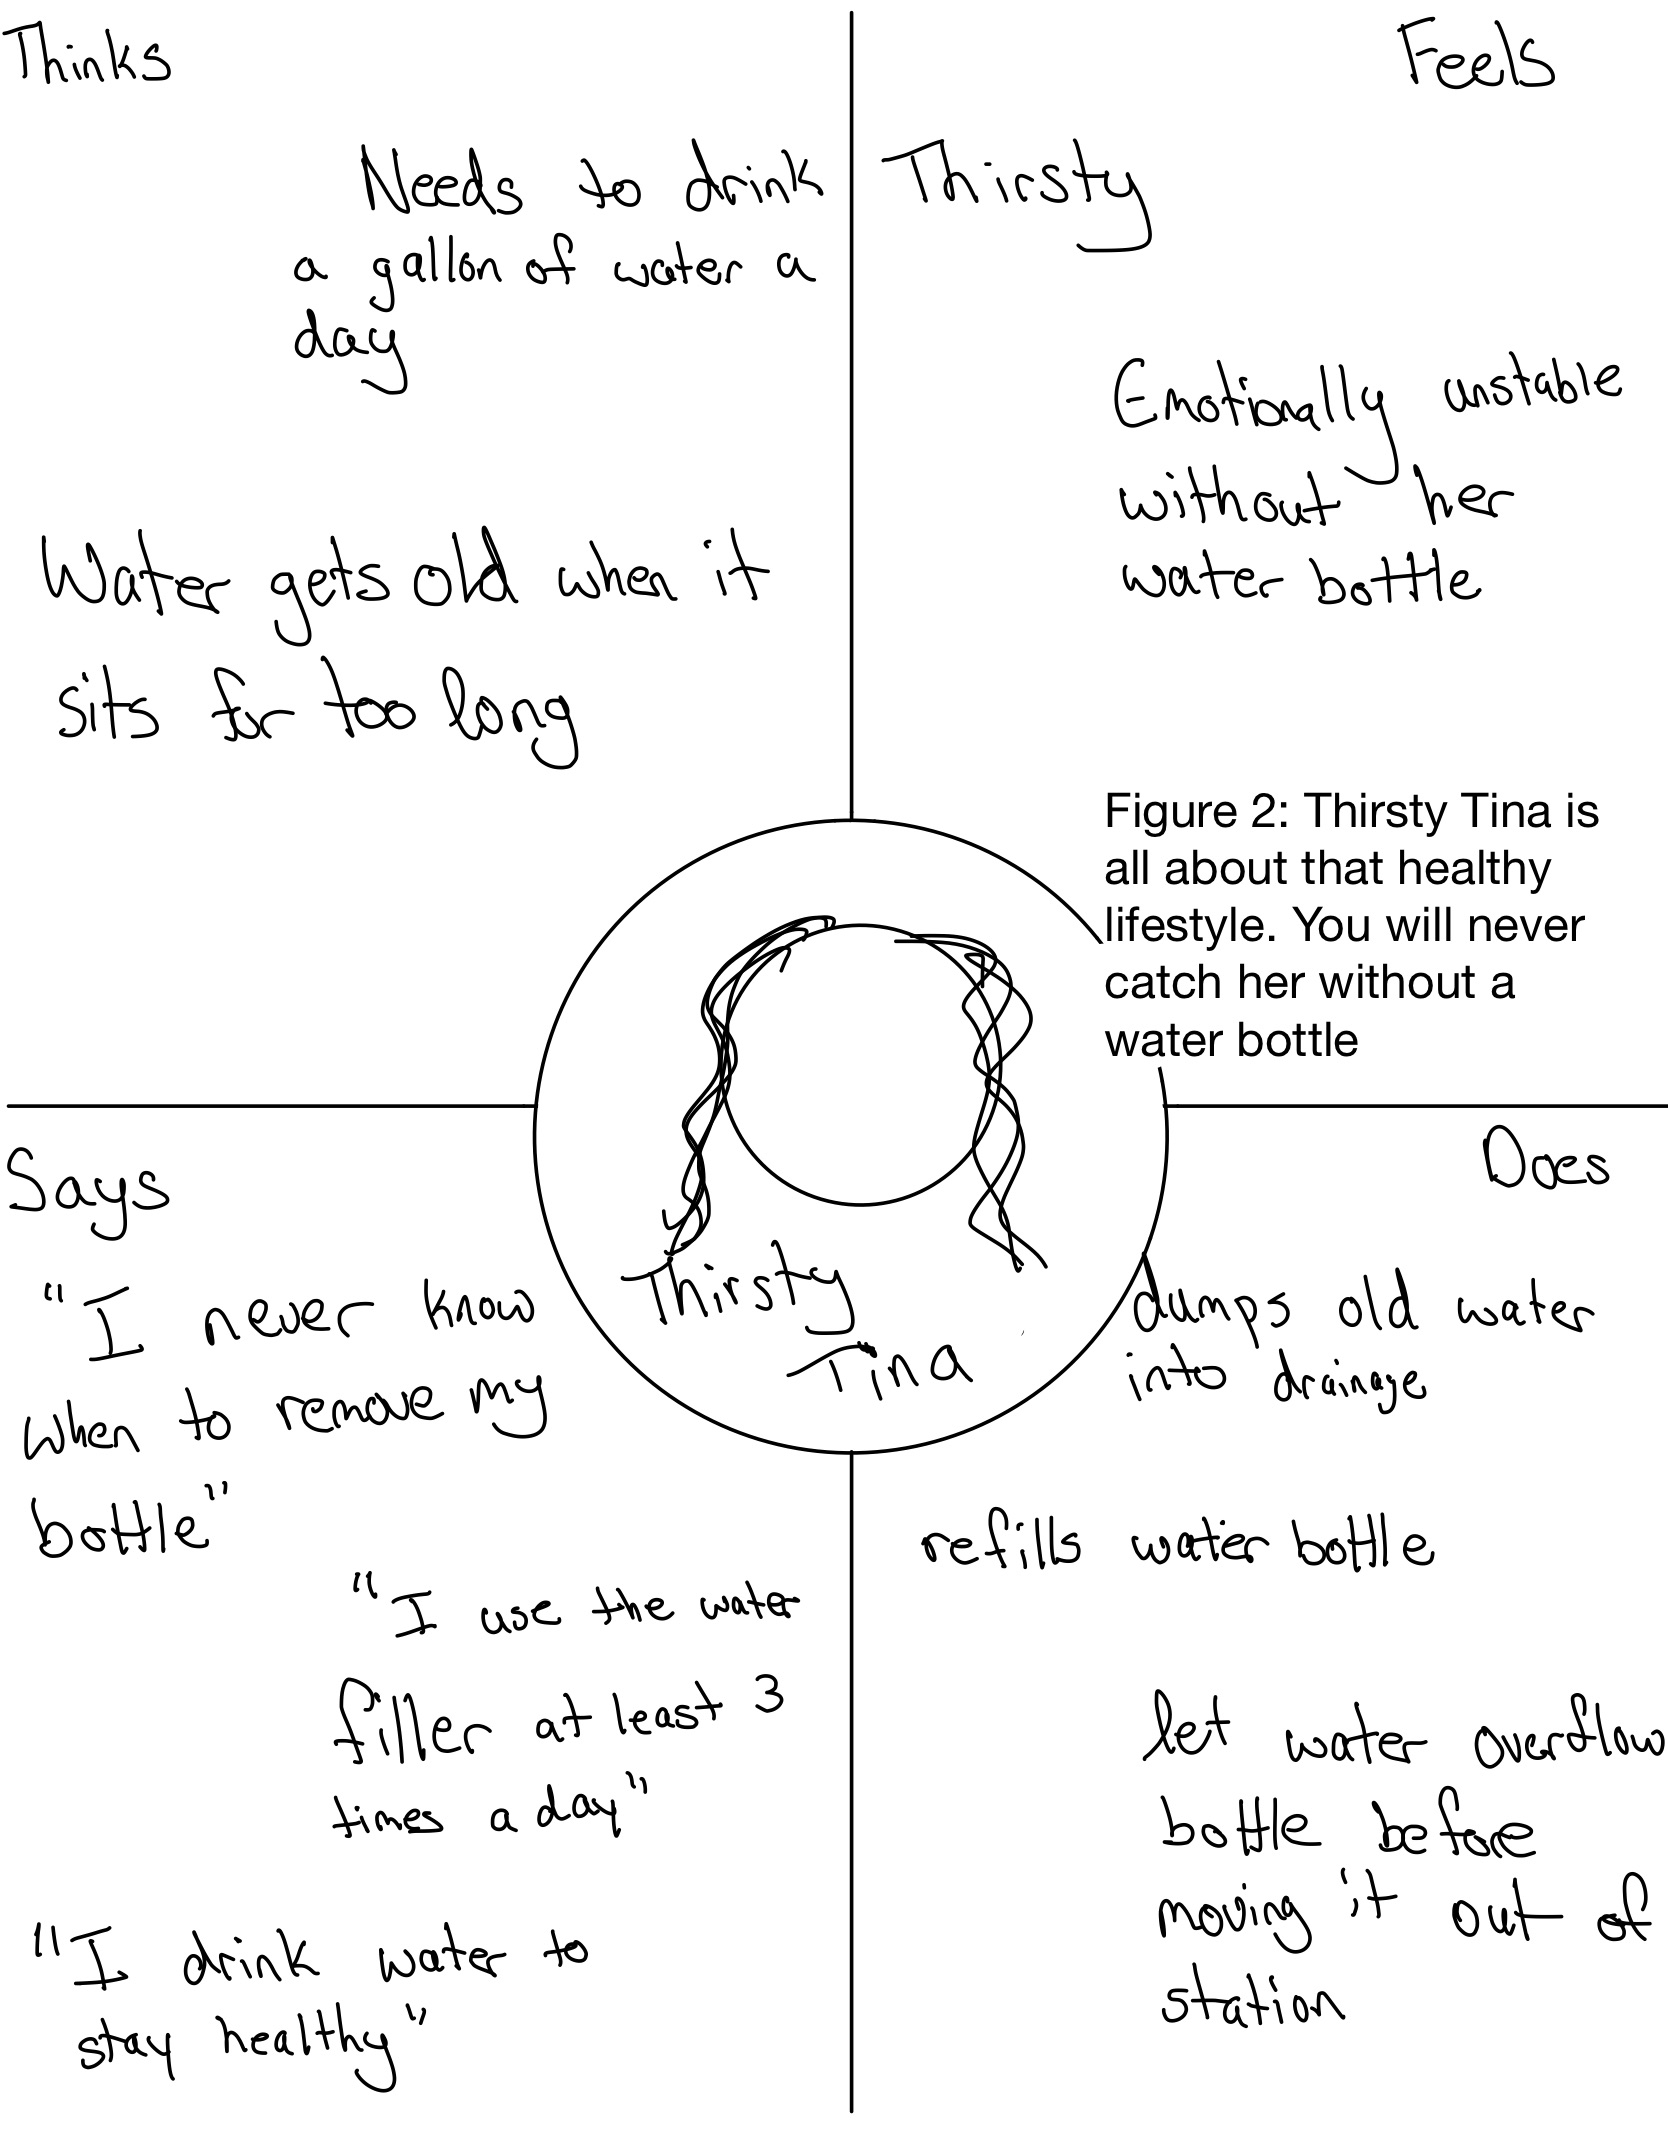 Thinks
Needs to drink
a gallon of water a
day
Water gets old when it
sits for too long
Feels
Thirsty
Emotionally unstable
without her
water bottle
Figure 2: Thirsty Tina is
all about that healthy
lifestyle. You will never
catch her without a
water bottle
Thirsty
Tina
Says
"I never know
when to remove my
bottle"
"I use the water
filler at least 3
times a day"
"I drink water to
stay healthy"
Does
dumps old water
into drainage
refills water bottle
let water overflow
bottle before
moving it out of
station